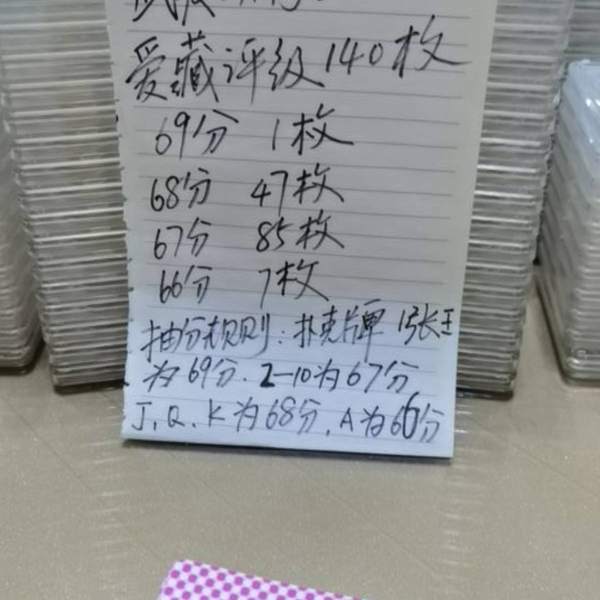 爱藏评级140枚
69分 1枚
68分 47枚
67分 85枚
66分 7枚
抽分规则:扑克牌 1张王
为69分.2-10为67分
J,Q,K为68分,A为66分